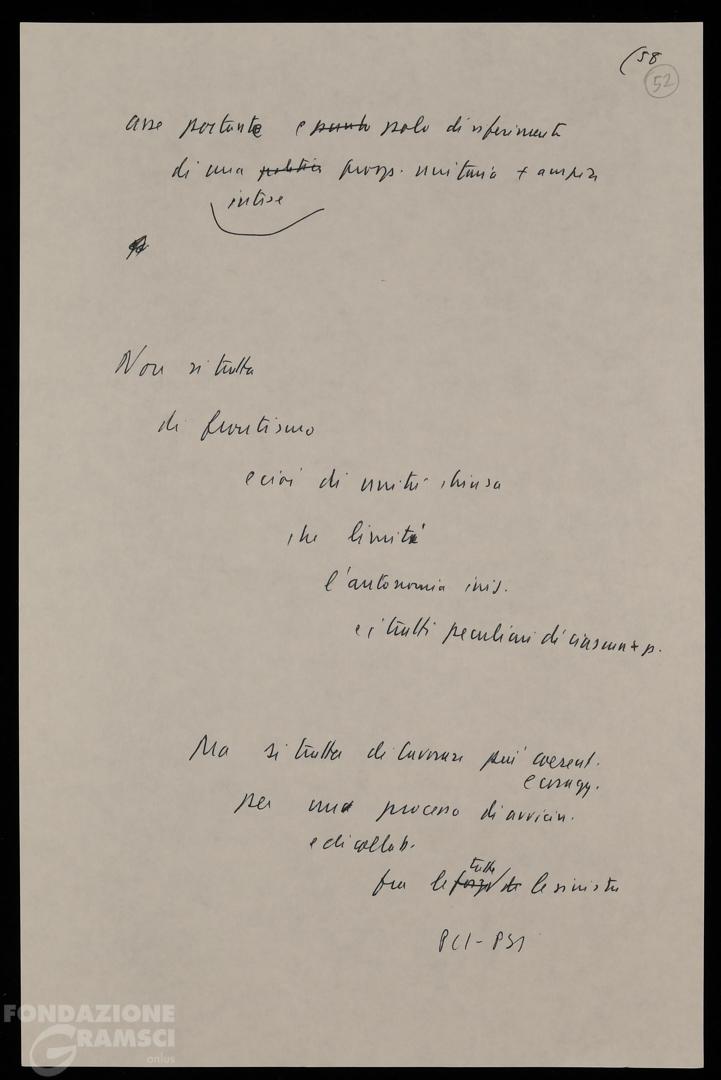 (58
52
asse portante e punto polo di riferimento
di una politica prosp. unitaria + ampia
intese
Non si tratta
di frontismo
e cioè di unità chiusa
che limiti
l'autonomia iniz.
e i tratti peculiari di ciascun p.
Ma si tratta di lavorare più coerent.
e coragg.
per un processo di avvicin.
e di collab.
tutte
fra le forze de le sinistre
PCI-PSI
FONDAZIONE
GRAMSCI
onlus